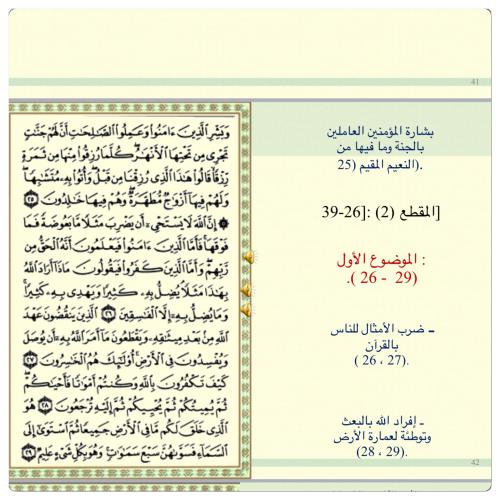 41
وَبَشِّرِ الَّذِينَ ءَامَنُوا وَعَمِلُوا الصَّالِحَاتِ أَنَّ لَهُمْ جَنَّاتٍ
تَجْرِي مِن تَحْتِهَا الْأَنْهَارُ كُلَّمَا رُزِقُوا مِنْهَا مِن ثَمَرَةٍ
رِّزْقًا قَالُوا هَذَا الَّذِي رُزِقْنَا مِن قَبْلُ وَأُتُوا بِهِ مُتَشَابِهًا
وَلَهُمْ فِيهَا أَزْوَاجٌ مُّطَهَّرَةٌ وَهُمْ فِيهَا خَالِدُونَ ٢٥
إِنَّ اللَّهَ لَا يَسْتَحْيِي أَن يَضْرِبَ مَثَلًا مَّا بَعُوضَةً فَمَا
فَوْقَهَا فَأَمَّا الَّذِينَ ءَامَنُوا فَيَعْلَمُونَ أَنَّهُ الْحَقُّ مِن
رَّبِّهِمْ وَأَمَّا الَّذِينَ كَفَرُوا فَيَقُولُونَ مَاذَا أَرَادَ اللَّهُ
بِهَذَا مَثَلًا يُضِلُّ بِهِ كَثِيرًا وَيَهْدِي بِهِ كَثِيرًا
وَمَا يُضِلُّ بِهِ إِلَّا الْفَاسِقِينَ ٢٦ الَّذِينَ يَنقُضُونَ عَهْدَ
اللَّهِ مِن بَعْدِ مِيثَاقِهِ وَيَقْطَعُونَ مَا أَمَرَ اللَّهُ بِهِ أَن يُوصَلَ
وَيُفْسِدُونَ فِي الْأَرْضِ أُولَئِكَ هُمُ الْخَاسِرُونَ ٢٧
كَيْفَ تَكْفُرُونَ بِاللَّهِ وَكُنتُمْ أَمْوَاتًا فَأَحْيَاكُمْ
ثُمَّ يُمِيتُكُمْ ثُمَّ يُحْيِيكُمْ ثُمَّ إِلَيْهِ تُرْجَعُونَ ٢٨ هُوَ
الَّذِي خَلَقَ لَكُم مَّا فِي الْأَرْضِ جَمِيعًا ثُمَّ اسْتَوَى إِلَى
السَّمَاءِ فَسَوَّاهُنَّ سَبْعَ سَمَاوَاتٍ وَهُوَ بِكُلِّ شَيْءٍ عَلِيمٌ ٢٩
بشارة المؤمنين العاملين
بالجنة وما فيها من
.(النعيم المقيم (25
[المقطع (2) :[26-39
: الموضوع الأول
(29 - 26 ).
ـ ضرب الأمثال للناس
بالقرآن
( 26 ، 27).
ـ إفراد الله بالبعث
وتوطئة لعمارة الأرض
(28 ، 29).
42